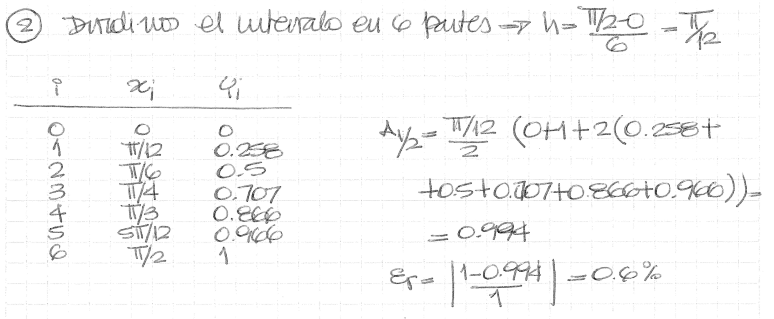 ② Dividimos el intervalo en 6 partes → h = (π/2-0)/6 = π/12
i xi yi
0 0 0
1 π/12 0.258
2 π/6 0.5
3 π/4 0.707
4 π/3 0.866
5 5π/12 0.966
6 π/2 1
A1/2 = (π/12)/2 (0+1+2(0.258+
+0.5+0.707+0.866+0.966)) =
= 0.994
εr = |(1-0.994)/1| = 0.6%